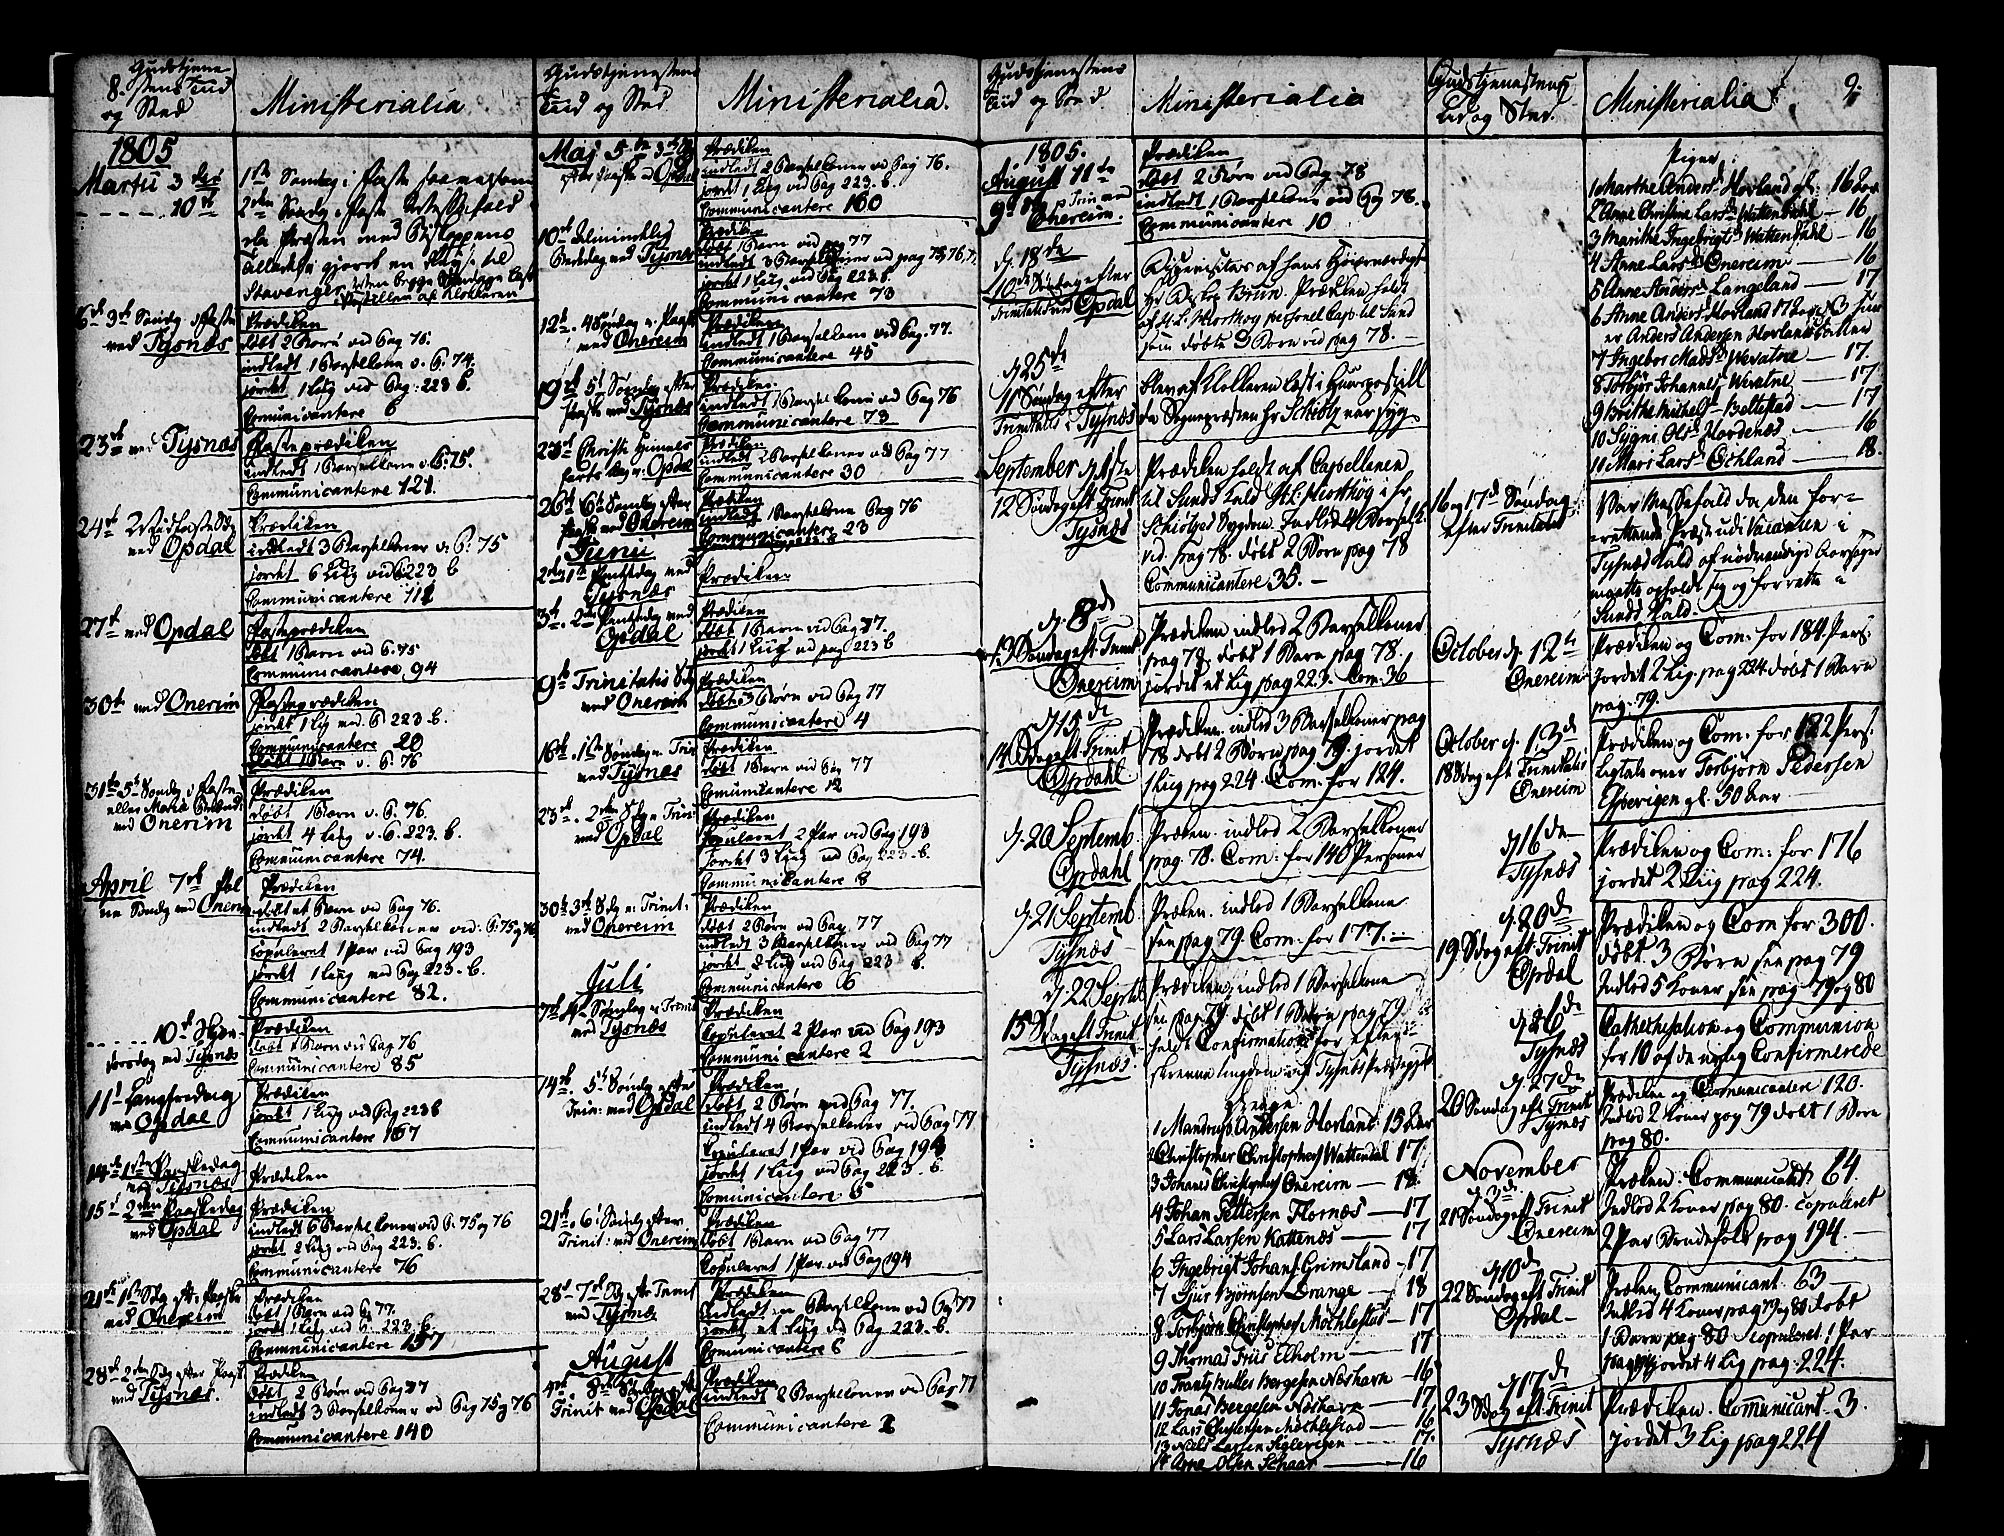 8. Gudstjene
stens Tiid
og Sted
Ministerialia
1805
Martii 3die
1ste Søndag i Faste
10de
2den Søndg i Faste Messefald
da Præsten med Biskoppens
Tilladelse gjorde en Rejse til
Stavanger
3de Søndg i Fasten
med Tysnæs
Prædiken
døbt 2 Børn ved Pag 75.
indledt 1 Barselkone v. P. 74.
jordet 1 Liig ved Pag: 223 b.
Comunicantere 6
23de ved Tysnæs
Fasteprædiken
indledt 1 Barselkone v. P: 75.
Communicantere 121.
24de Midfaste Sdg
ved Opdal
Prædiken
indledt 3 Barselkoner v: P: 75
jordet 6 Liig ved P. 223 b
Communicantere 112
27de ved Opdal
Fasteprædiken
døbt 1 Barn v. P. 75
Communicantere 94
30te ved Onereim
Fasteprædiken
jordet 1 Liig ved P 223 b.
Communicantere 20
døbt 1 Barn v. P. 76
31te 5te Søndg i Faste
eller Mariæ
ved Onereim
Prædiken
døbt 1 Barn v. P. 76.
jordet 4 Liig v. P. 223. b.
Communicantere 74.
April 7de Pal
me Søndg ved Onereim
Prædiken
døbt et Barn ved Pag 76.
indledt 2 Barselkoner ved: P: 75 og 76
copuleret 1 Par ved Pag 193
jordet 1 Liig ved Pag 223. b.
Communicantere 82.
10de Skjær-
torsdag ved Tysnæs
Prædiken
døbt 1 Barn ved Pag 76
Communicantere 85
11te Langfredag
ved Opdal
Prædiken
jordet 1 Liig ved Pag 223 b
Communicantere 167
14de 1ste Paaskedag
ved Tysnæs
Prædiken
15de 2den Paaskedag
ved Opdal
Prædiken
indledt 6 Barselkoner ved P: 75 og 76
jordet 2 Liig ved Pag 223. b.
Communicantere 76
21de 1ste Sdg efter Paaske
ved Onereim
Prædiken
døbt 1 Barn ved Pag 77.
jordet 1 Liig ved P. 223. b.
Communicantere 157
28de 2den Sdg efter Paaske
ved Tysnæs.
Prædiken
døbt 2 Børn ved Pag 77
indledt 3 Barselkoner ved Pag 75 og 76
Communicantere 140
Gudstjenestens
Tiid og Sted
Ministerialia.
Maj 5te 3die Sdg
efter Paaske ved Opdal
Prædiken
indledt 2 Barselkoner ved Pag 76.
jordet 1 Liig ved Pag 223. b.
Communicantere 160
10de Almindelig
Bededag ved Tysnæs
Prædiken
døbt 1 Barn ved pag 77
indledt 3 Barselkoner ved pag 75, 76, 77
jordet 1 Liig ved Pag 223 b
Communicantere 73
12te 4 Søndg e. Paaske
ved Onereim
Prædiken
indledt 1 Barselkone ved Pag. 77.
Communicantere 45
19de 5te Søndg efter
Paaske ved Tysnæs
Prædiken.
indledt 1 Barselkone ved Pag 76
Communicantere 73
23de Christi Himmel
farts Dag v. Opdal
Prædiken
indledt 2 Barselkoner ved Pag 77
Communicantere 30
26de 6te Søndg efter
Paaske ved Onereim
Prædiken
indledt 1 Barselkone Pag 76
Communicantere 23
Junii
2den 1ste Pintsedag ved
Tysnæs
Prædiken.
3die 2den Pintsedag ved
Opdal
Prædiken
døbt 1 Barn ved Pag 77.
jordet 1 Liig ved pag 223 b
9de Trinitatis Sdg
ved Onereim
Prædiken
døbt 3 Børn ved Pag 77
Communicantere 4
16de 1ste Søndg e. Trin
ved Tysnæs
Prædiken
døbt 1 Barn ved Pag 77
Comunicantere 12
23de 2den Sdg e Trin:
ved Opdal
Prædiken
Copuleret 2 Par ved Pag: 193
Jordet 3 Liig ved Pag 223. b.
Communicantere 8
30te 3de Sdg e: Trinit:
ved Onereim
Prædiken
døbt 2 Børn ved Pag. 77
indledt 3 Barselkoner ved Pag 77
jordet 2 Liig ved Pag 223 b.
Communicantere 6
Juli
7de 4de Søndag e Trinit
ved Tysnæs
Prædiken
Copuleret 2 Par ved Pag 193
Communicantere 2
14de 5te Søndg efter
Trin: ved Opdal
Prædiken
døbt 2 Børn ved Pag 77.
indledt 4 Barselkoner ved Pag 77
Copuleret 1 Par ved Pag 194
jordet 1 Liig ved Pag 223. b.
Comunicantere 5
21de 6te Søndg efter
Trinit: ved Onereim
Prædiken
døbt 1 Barn ved Pag 77
Copuleret 1 Par ved Pag 194
28de 7de Sdg eftr Trinit
ved Tysnæs
Prædiken
indledt en Barselkone ved Pag 77
jordet et Liig ved Pag 223. b.
Communicantere 6
August
4de 8de Søndag efter
Trinit ved Opdal
Prædiken
indledt 2 Barselkoner ved Pag 77
Communicantere 2
Gudstjenestens
Tiid og Sted
Ministerialia
1805.
August 11te
9de Sdg e Trin ved
Onereim.
Prædiken
døbt 2 Børn ved Pag 78
indledt 1 Barselkone ved Pag 78.
Communicantere 10
d. 18de
10de Søndag efter
Trinitatis ved Opdal
Bispevisitas af hans Højærværdighed
Hr Biskop Brun. Prædiken holdt
af H. L. Hiorthøg personel Cap: til Sund
som døbte 3 Børn vid pag 78.
d 25de
11 Søndag efter
Trinitatis i Tysnæs
blev af Klokkeren læst i Huuspostill
da Sognepræsten Hr Schiøtz var syg.
September d. 1ste
12 Søndag eft Trinit
Tysnæs
Prædiken holdt af Capellanen
til Sunds Kald H. L. Hiorthøg i hr
Schiøtzes Sygdom. Indledt 4 Barselk.
vid. pag 78. døbt 2 Børn pag 78
Communicantere 35. –
d. 8de
13 Søndag eft Trinit
Onereim
Prædiken indled 2 Barselkoner
pag 79, døbt 1 Barn pag 78.
jordet et Lig pag 223. Com: 36
d 15de
14 Sdag eft Trinit
Opdahl
Prædiken. indled 3 Barselkoner pag
78 døbt 2 Børn pag 79. jordet
1 Liig pag 224. Com: for 124.
d. 20 Septemb
Opdahl
Præken. indled 2 Barselkoner
pag. 78. Com: for 140 Personer
d. 21 Septemb
Tysnæs
Præken. indled 1 Barselkone
see pag 79. Com: for 177.
d. 22 Septb
15 Sdag eft Trinit
Tysnæs
Prædiken, indled 1 Barselkone
see pag 79. døbt 1 Barn pag 79
holdt Confirmation for efter-
skrevne Ungdom af Tysnæs Præstegield
Drenge
1 Mandrup Andersen Horland 15 Aar
2 Christopher Christophers Wattendal 17
3 Johans Christophers Onereim – 18
4 Johan Pettersen Flornæs – 17
5 Lars Larsen Kattenæs – 17
6 Ingebrigt Johans. Grimsland – 17
7 Siur Biørnsen Drange – 18
8 Torbjørn Christophers Møchlestad – 17
9 Thomas Friis Elholm – 17
10 Frantz Bulles Bergesen Nøshavn – 16
11 Jonas Bergesen Nøshavn – 17
12 Lars Christensen Møchlestad – 16
13 Niels Larsen – 17.
14 Arne Olsen Schaar – 16
Gudstjenestens
Tid og Sted.
Ministerialia
9.
Piger
1 Marthe Andersd Horland gl: 16 Aar
2 Anne Christine Larsd Wattendahl – 16
3 Marithe Ingebrigtsd Wattendahl – 16
4 Anne Larsd Onereim – 16
5 Anne Andersd Langeland – 17
6 Anne Andersd Horland 17 Aar
er Anders Andersen Horlands Datter
7 Ingebor Madsd Wevatne – 17.
8 Torbiør Johannesd Wevatne – 17
9 Brithe Michelsd Beltestad – 17
10 Sygni Olsd Hordenæs – 16
11 Mari Larsd Øchland – 18.
16 og 17de Søndag
efter Trinitatis
Var Messefald da den for-
rettende Præst udi Vacancen i
Tysnæs Kald af nødvendige Aarsager
maatte opholde sig og forrette i
Sunds Kald
October d. 12te
Onereim
Prædiken og Com: for 184 Pers:
jordet 2 Lig. pag 224 døbt 1 Barn
pag. 79.
October d. 13de
18 Sdag eft Trinitatis
Onereim
Prædiken og Com: for 122 Pers:
Ligtale over Torbjørn Pedersen
Espevigen gl. 50 Aar
d 16de
Tysnæs
Prædiken og Com: for 176
jordet 2 Liig pag 224.
d. 20de
19 Sdag eft Trinit
Opdal
Prædiken og Com for 300.
døbt 3 Børn see pag 79
Indled 5 Koner see pag 79 og 80
d. 26de
Tysnæs
Cathechisation og Communion
for 10 af de nylig Confirmerede
d. 27de
20 Søndag eft Trinit
Tysnæs
Prædiken og Communicantere 120.
Indled 2 Koner pag 79 døbt 1 Barn
pag 80.
November
d 3de
21 Søndag eft Trinit
Onereim
Præken. Communicant 64.
Indled 2 Koner pag 80. copuleret
2 Par Brudefolk pag 194.
d 10de
22 Søndag eft Trinit
Opdal
Præken, Communicant. 63
Indled 4 Koner pag 79 og 80 døbt
1 Barn pag 80 copuleret 1 Par
jordet 4 Lig pag: 224.
d 17de
23 Sdag eft Trinit
Tysnæs
Prædiken. Comunicant. 3.
Jordet 3 Lig pag 224